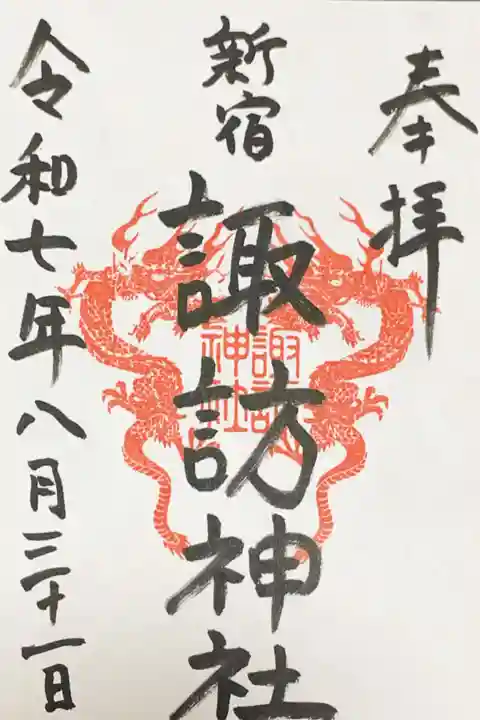 奉拝
新宿
諏訪神社
諏訪
神社
令和七年八月三十一日